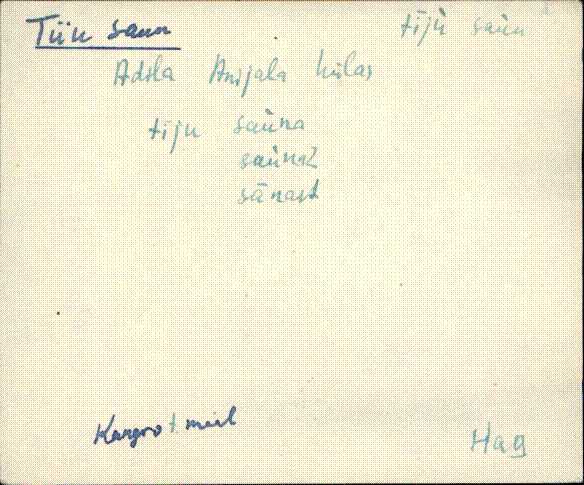 Tiiu saun
tiju saun
Adila Anijala külas
tiju sauna
saunaz
sānast
Kangro t. meil
Hag